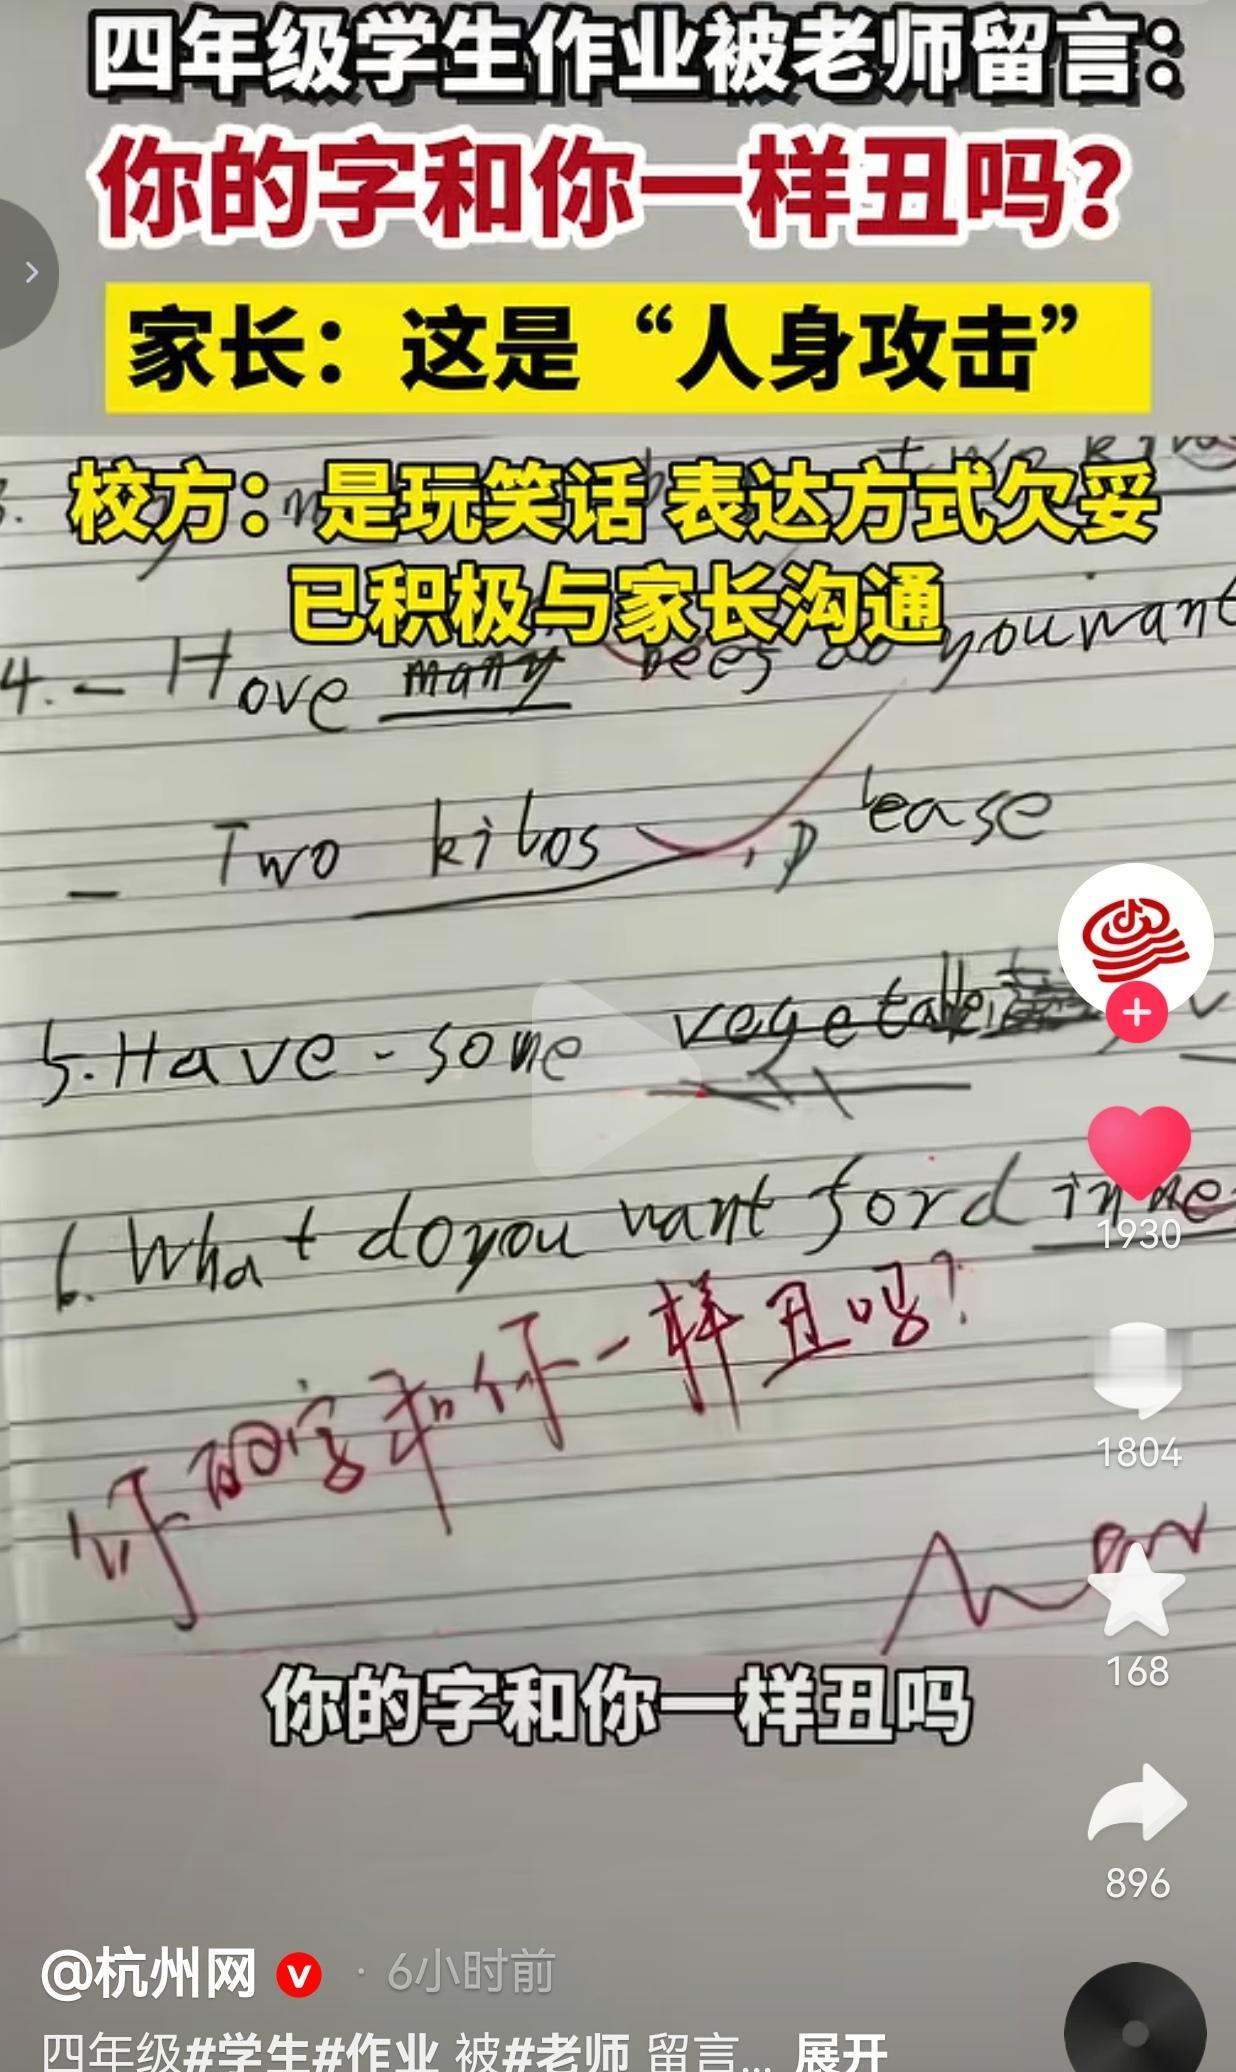 四年级学生作业被老师留言：
你的字和你一样丑吗？
家长：这是“人身攻击”
校方：是玩笑话 表达方式欠妥
已积极与家长沟通
4. - Hove many bees do you want
- Two kilos, Please
5. Have - some vegetable
6. What do you want ford inne
你的字和你一样丑吗？
你的字和你一样丑吗
1930
1804
168
896
@杭州网 · 6小时前
四年级#学生#作业 被#老师 留言... 展开